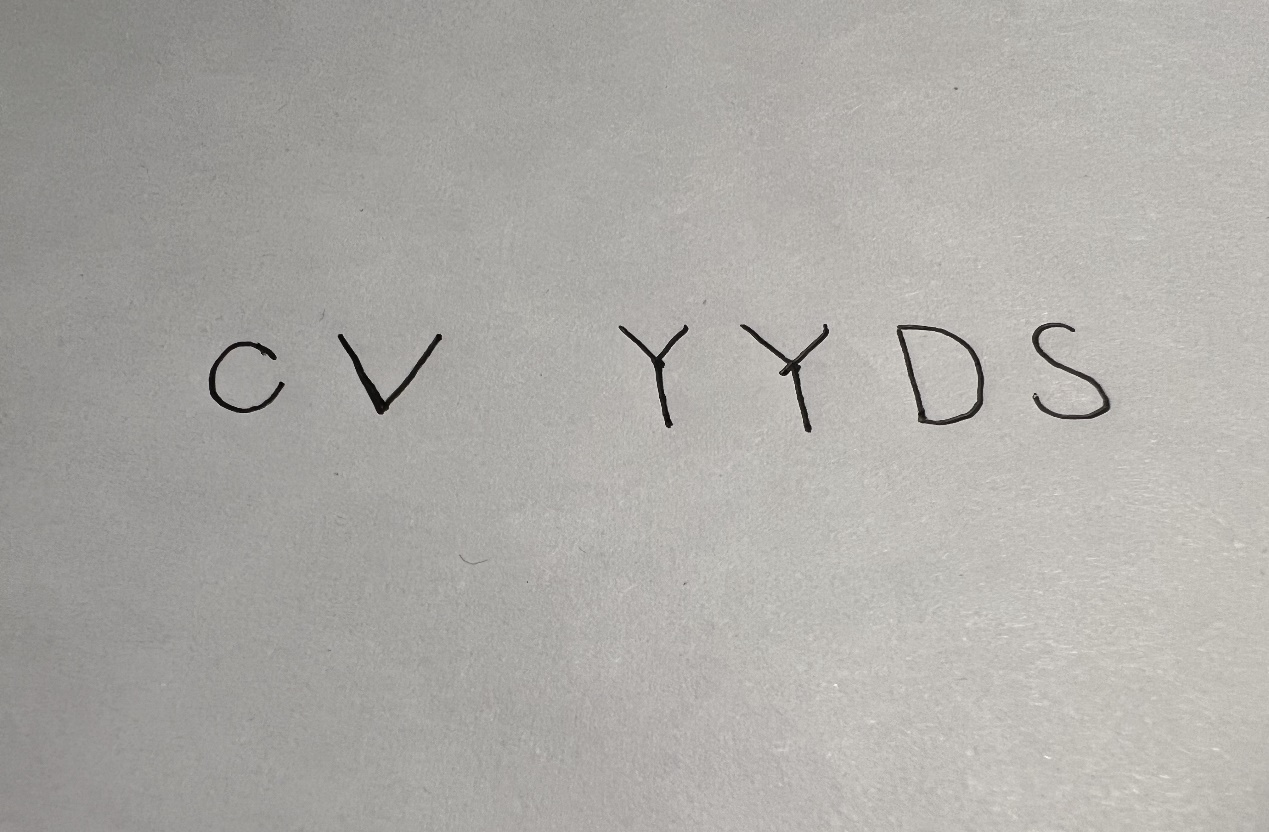 CV YYDS